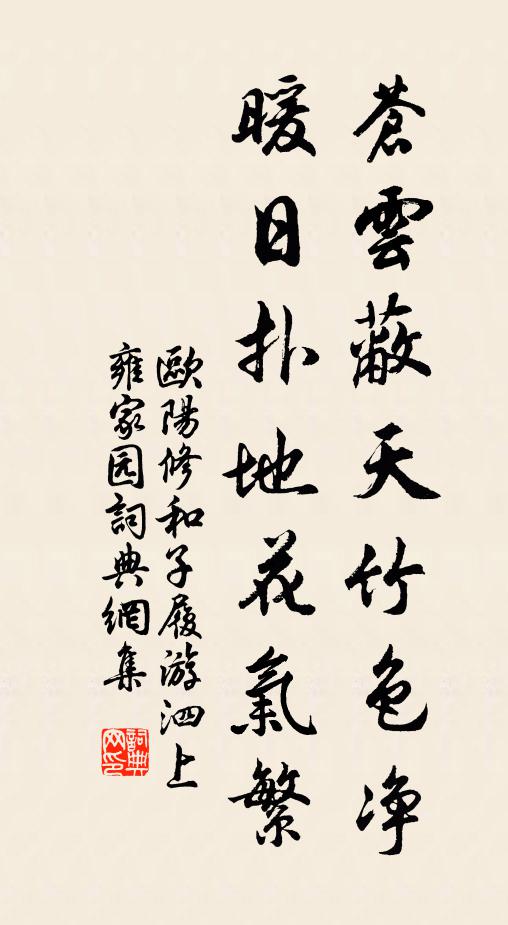 蒼雲蔽天竹色净
暖日扑地花氣繁
歐陽修和子履游泗上
雍家园詞典網集
詞典网印